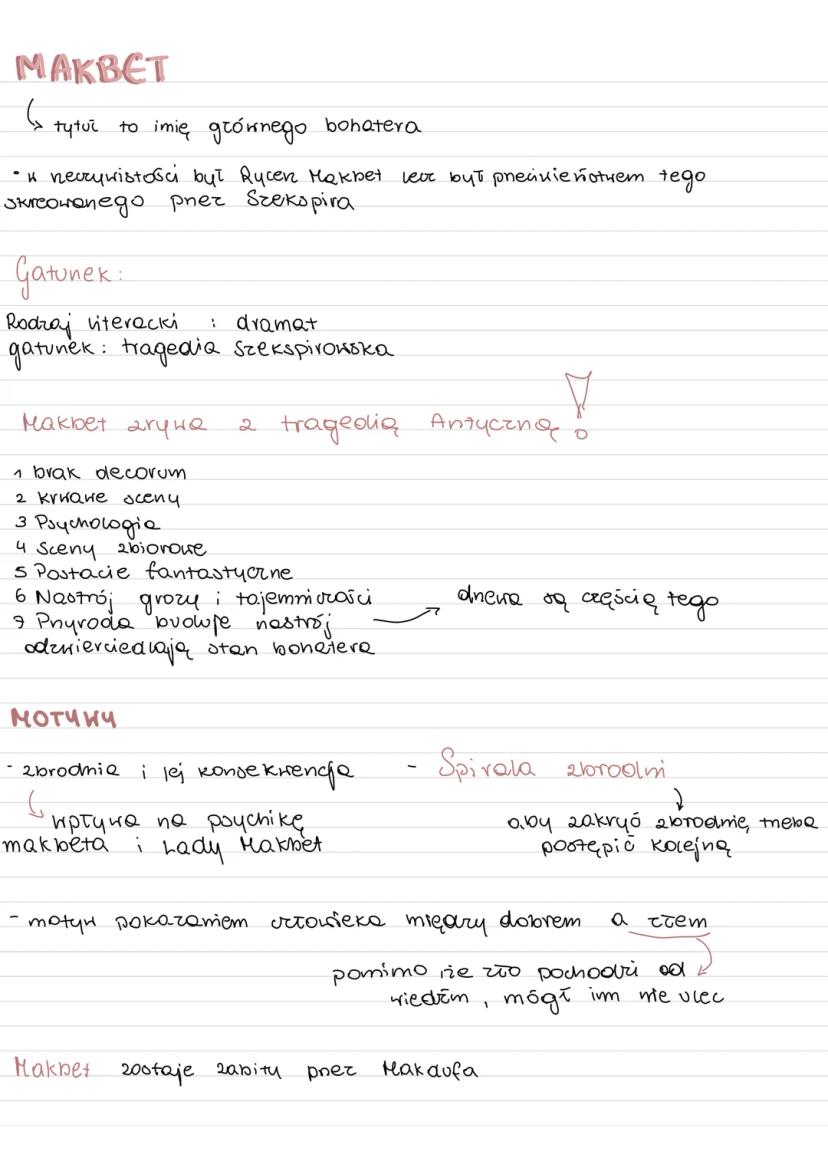 MAKBET
tytuł to imię głównego bohatera
• w rzeczywistości był Rycerz Makbet lecz był przeciwieństwem tego
skreowanego przez Szekspira
Gatunek:
Rodzaj literacki : dramat
gatunek: tragedia szekspirowska
Makbet zrywa z tragedią Antyczną !
1 brak decorum
2 krwawe sceny
3 Psychologia
4 Sceny zbiorowe
5 Postacie fantastyczne
6 Nastrój grozy i tajemniczości
7 Przyroda buduje nastrój → drzewa są częścią tego
odzwierciedlają stan bohatera
MOTYWY
- zbrodnia i jej konsekwencja - Spirala zbrodni
wpływa na psychikę aby zakryć zbrodnię, trzeba
makbeta i Lady Makbet postępić kolejną
- motyw pokazaniem człowieka między dobrem a złem
pomimo że zło pochodzi od
wiedźm, mógł im nie ulec
Makbet zostaje zabity przez Makdufa